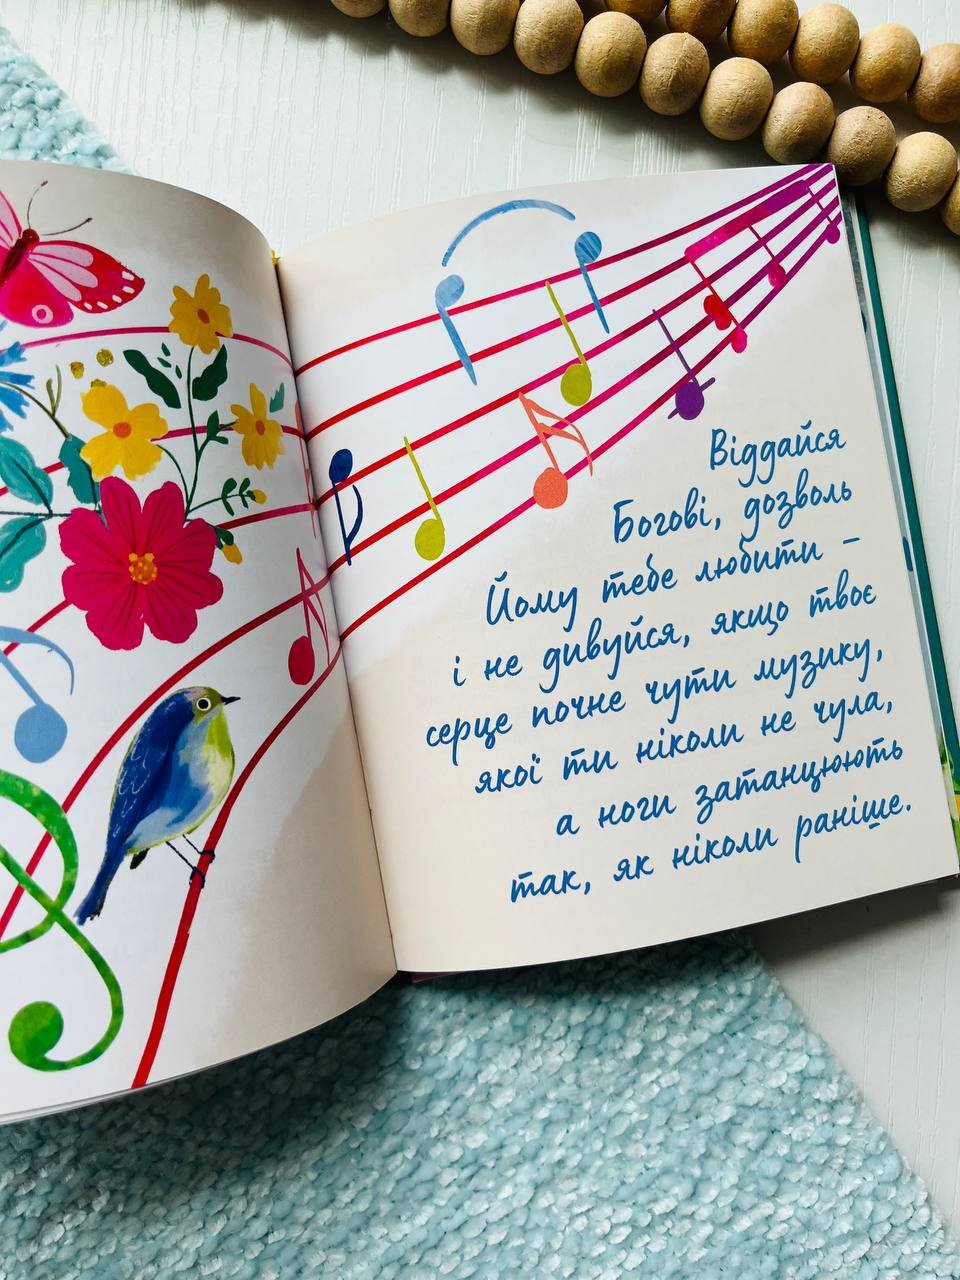 Віддайся
Богові, дозволь
Йому тебе любити –
і не дивуйся, якщо твоє
серце почне чути музику,
якої ти ніколи не чула,
а ноги затанцюють
так, як ніколи раніше.